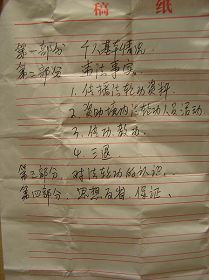 稿 纸
第一部分 个人基本情况
第二部分 违法事实
1. 传播法轮功资料
2. 资助境内法轮功人员活动
3. 传功教功
4. 三退
第三部分 对法轮功的认识
第四部分 思想反省、保证、